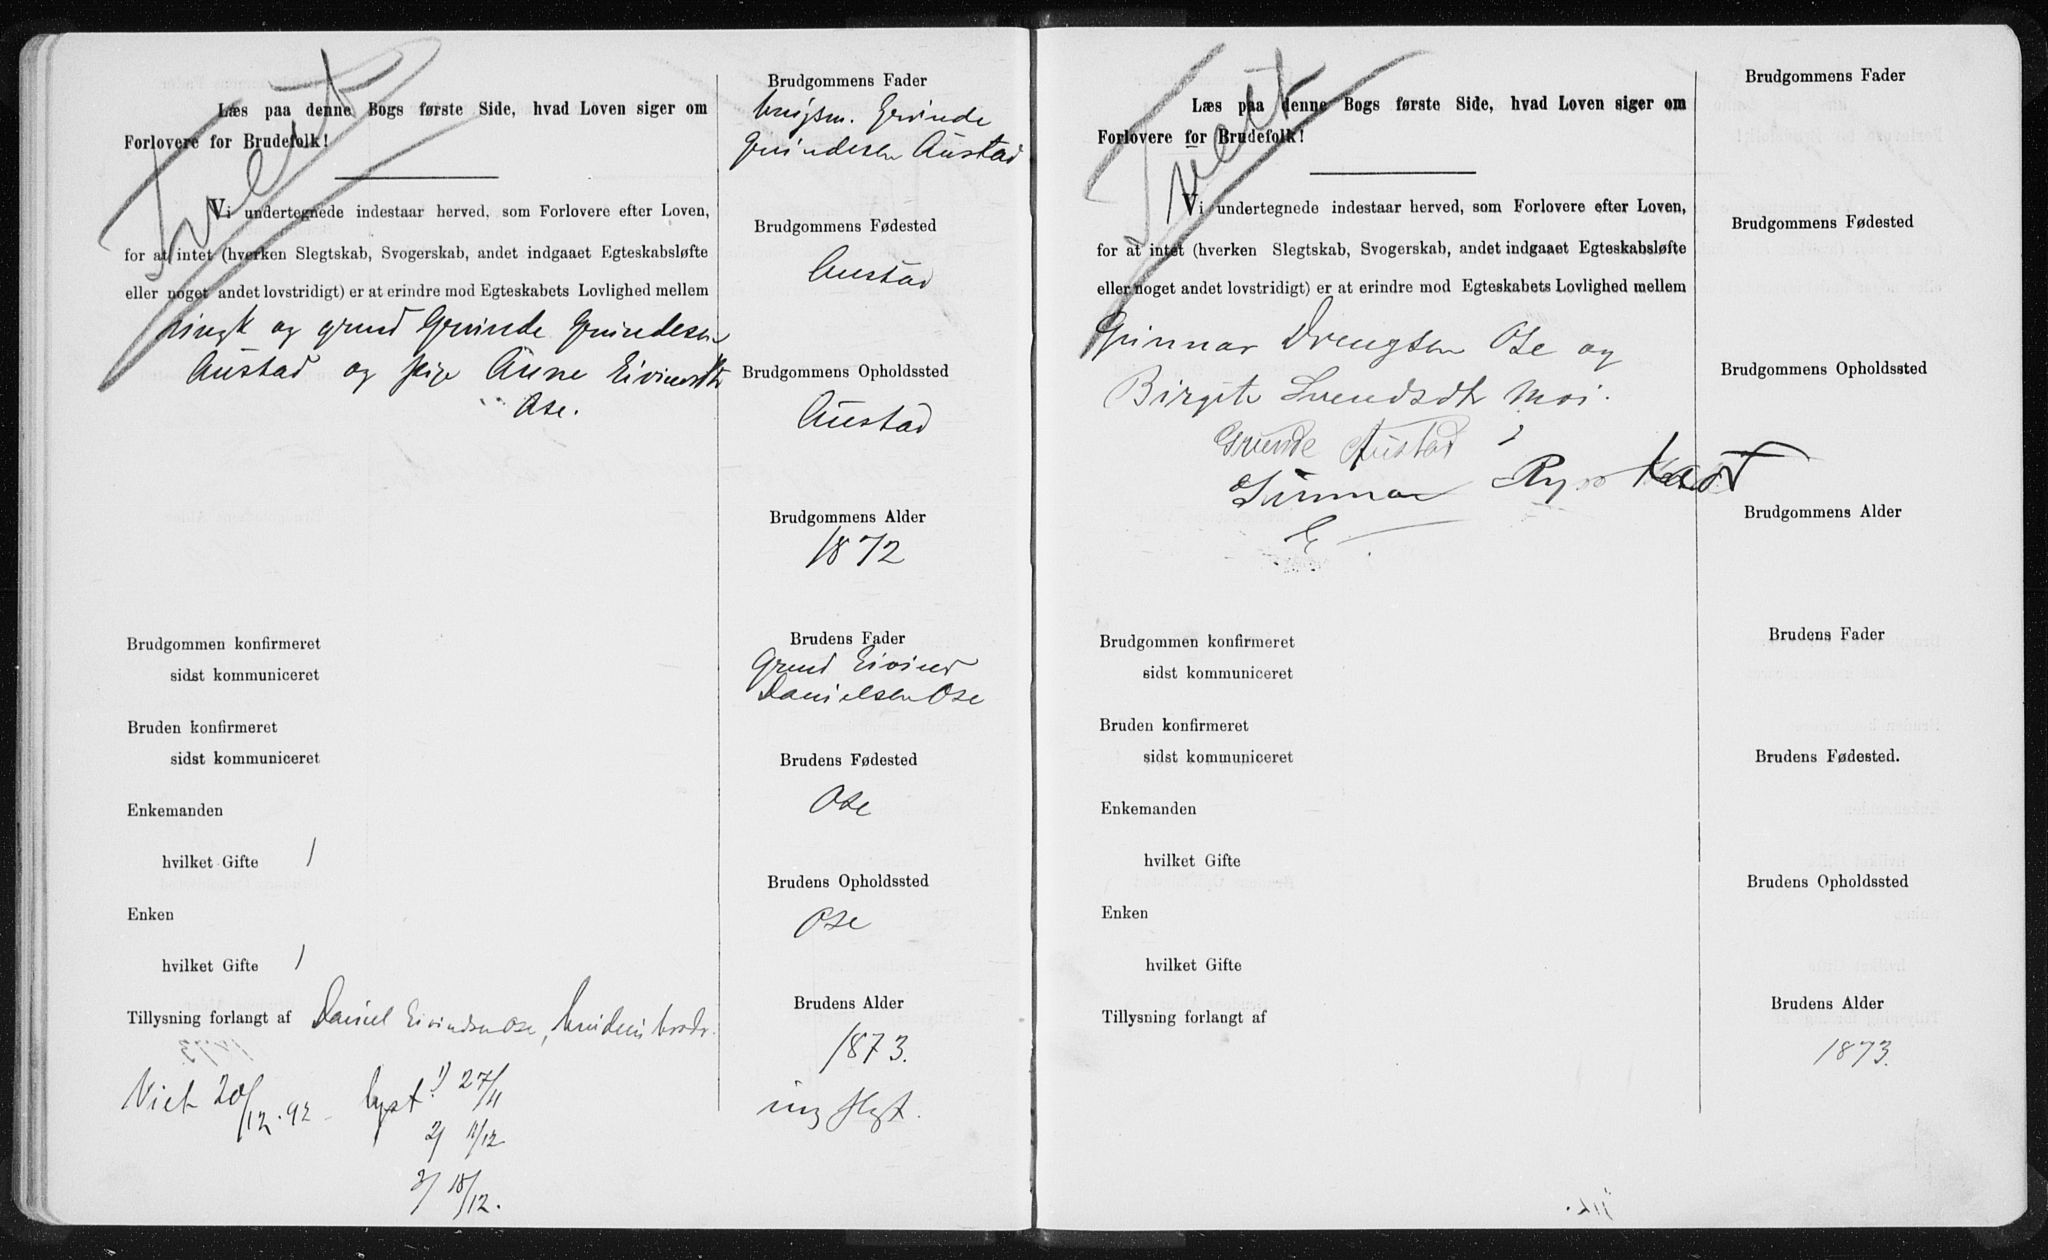 Tveit
Læs paa denne Bogs første Side, hvad Loven siger om
Forlovere for Brudefolk!
Vi undertegnede indestaar herved, som Forlovere efter Loven,
for at intet (hverken Slegtskab, Svogerskab, andet indgaaet Egteskabsløfte
eller noget andet lovstridigt) er at erindre mod Egteskabets Lovlighed mellem
og
Austad og pige Anne Eivindsdtr
Ose.
Brudgommen konfirmeret
sidst kommuniceret
Bruden konfirmeret
sidst kommuniceret
Enkemanden
hvilket Gifte 1
Enken
hvilket Gifte 1
Tillysning forlangt af Daniel Eivindsen Ose, brudens broder.
Viet 20/12. 92 lyst 1) 27/11
2) 11/12
3) 18/12.
Brudgommens Fader
Austad
Brudgommens Fødested
Austad
Brudgommens Opholdssted
Austad
Brudgommens Alder
1872
Brudens Fader
Eivind
Danielsen Ose
Brudens Fødested
Ose
Brudens Opholdssted
Ose
Brudens Alder
1873.
ing Slgt.
Tveit
Læs paa denne Bogs første Side, hvad Loven siger om
Forlovere for Brudefolk!
Vi undertegnede indestaar herved, som Forlovere efter Loven,
for at intet (hverken Slegtskab, Svogerskab, andet indgaaet Egteskabsløfte
eller noget andet lovstridigt) er at erindre mod Egteskabets Lovlighed mellem
Gunnar Drengsen Ose og
Birgite Svendsdtr Moi.
Grunde Austad
Gunnar
Brudgommen konfirmeret
sidst kommuniceret
Bruden konfirmeret
sidst kommuniceret
Enkemanden
hvilket Gifte
Enken
hvilket Gifte
Tillysning forlangt af
Brudgommens Fader
Brudgommens Fødested
Brudgommens Opholdssted
Brudgommens Alder
Brudens Fader
Brudens Fødested.
Brudens Opholdssted
Brudens Alder
1873.